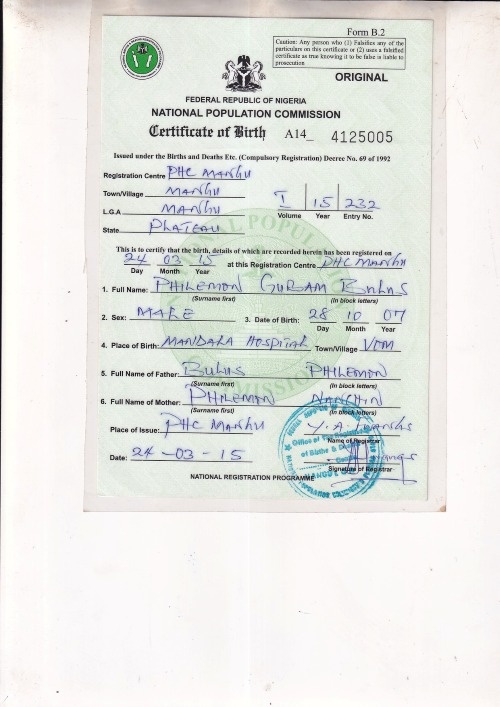 Form B.2
Caution: Any person who (1) Falsifies any of the
particulars on this certificate or (2) uses a falsified
certificate as true knowing it to be false is liable to
prosecution
ORIGINAL
FEDERAL REPUBLIC OF NIGERIA
NATIONAL POPULATION COMMISSION
Certificate of Birth A14_ 4125005
Issued under the Births and Deaths Etc. (Compulsory Registration) Decree No. 69 of 1992
Registration Centre PHC MANGU
Town/Village MANGU I 15 232
L.G.A MANGU Volume Year Entry No.
State PLATEAU
This is to certify that the birth, details of which are recorded herein has been registered on
24 03 15 at this Registration Centre PHC MANGU
Day Month Year
1. Full Name: PHILEMON GURSAM BULUS
(Surname first) (In block letters)
2. Sex: MALE 3. Date of Birth: 28 10 07
Day Month Year
4. Place of Birth: MANDARA HOSPITAL Town/Village VOM
5. Full Name of Father: BULUS PHILEMON
(Surname first) (In block letters)
6. Full Name of Mother: PHILEMON NANCHIN
(Surname first) (In block letters)
Place of Issue: PHC MANGU Y. A.
Name of Registrar
Date: 24-03-15
Signature of Registrar
NATIONAL REGISTRATION PROGRAMME
Office of the Registrar
of Births & Deaths